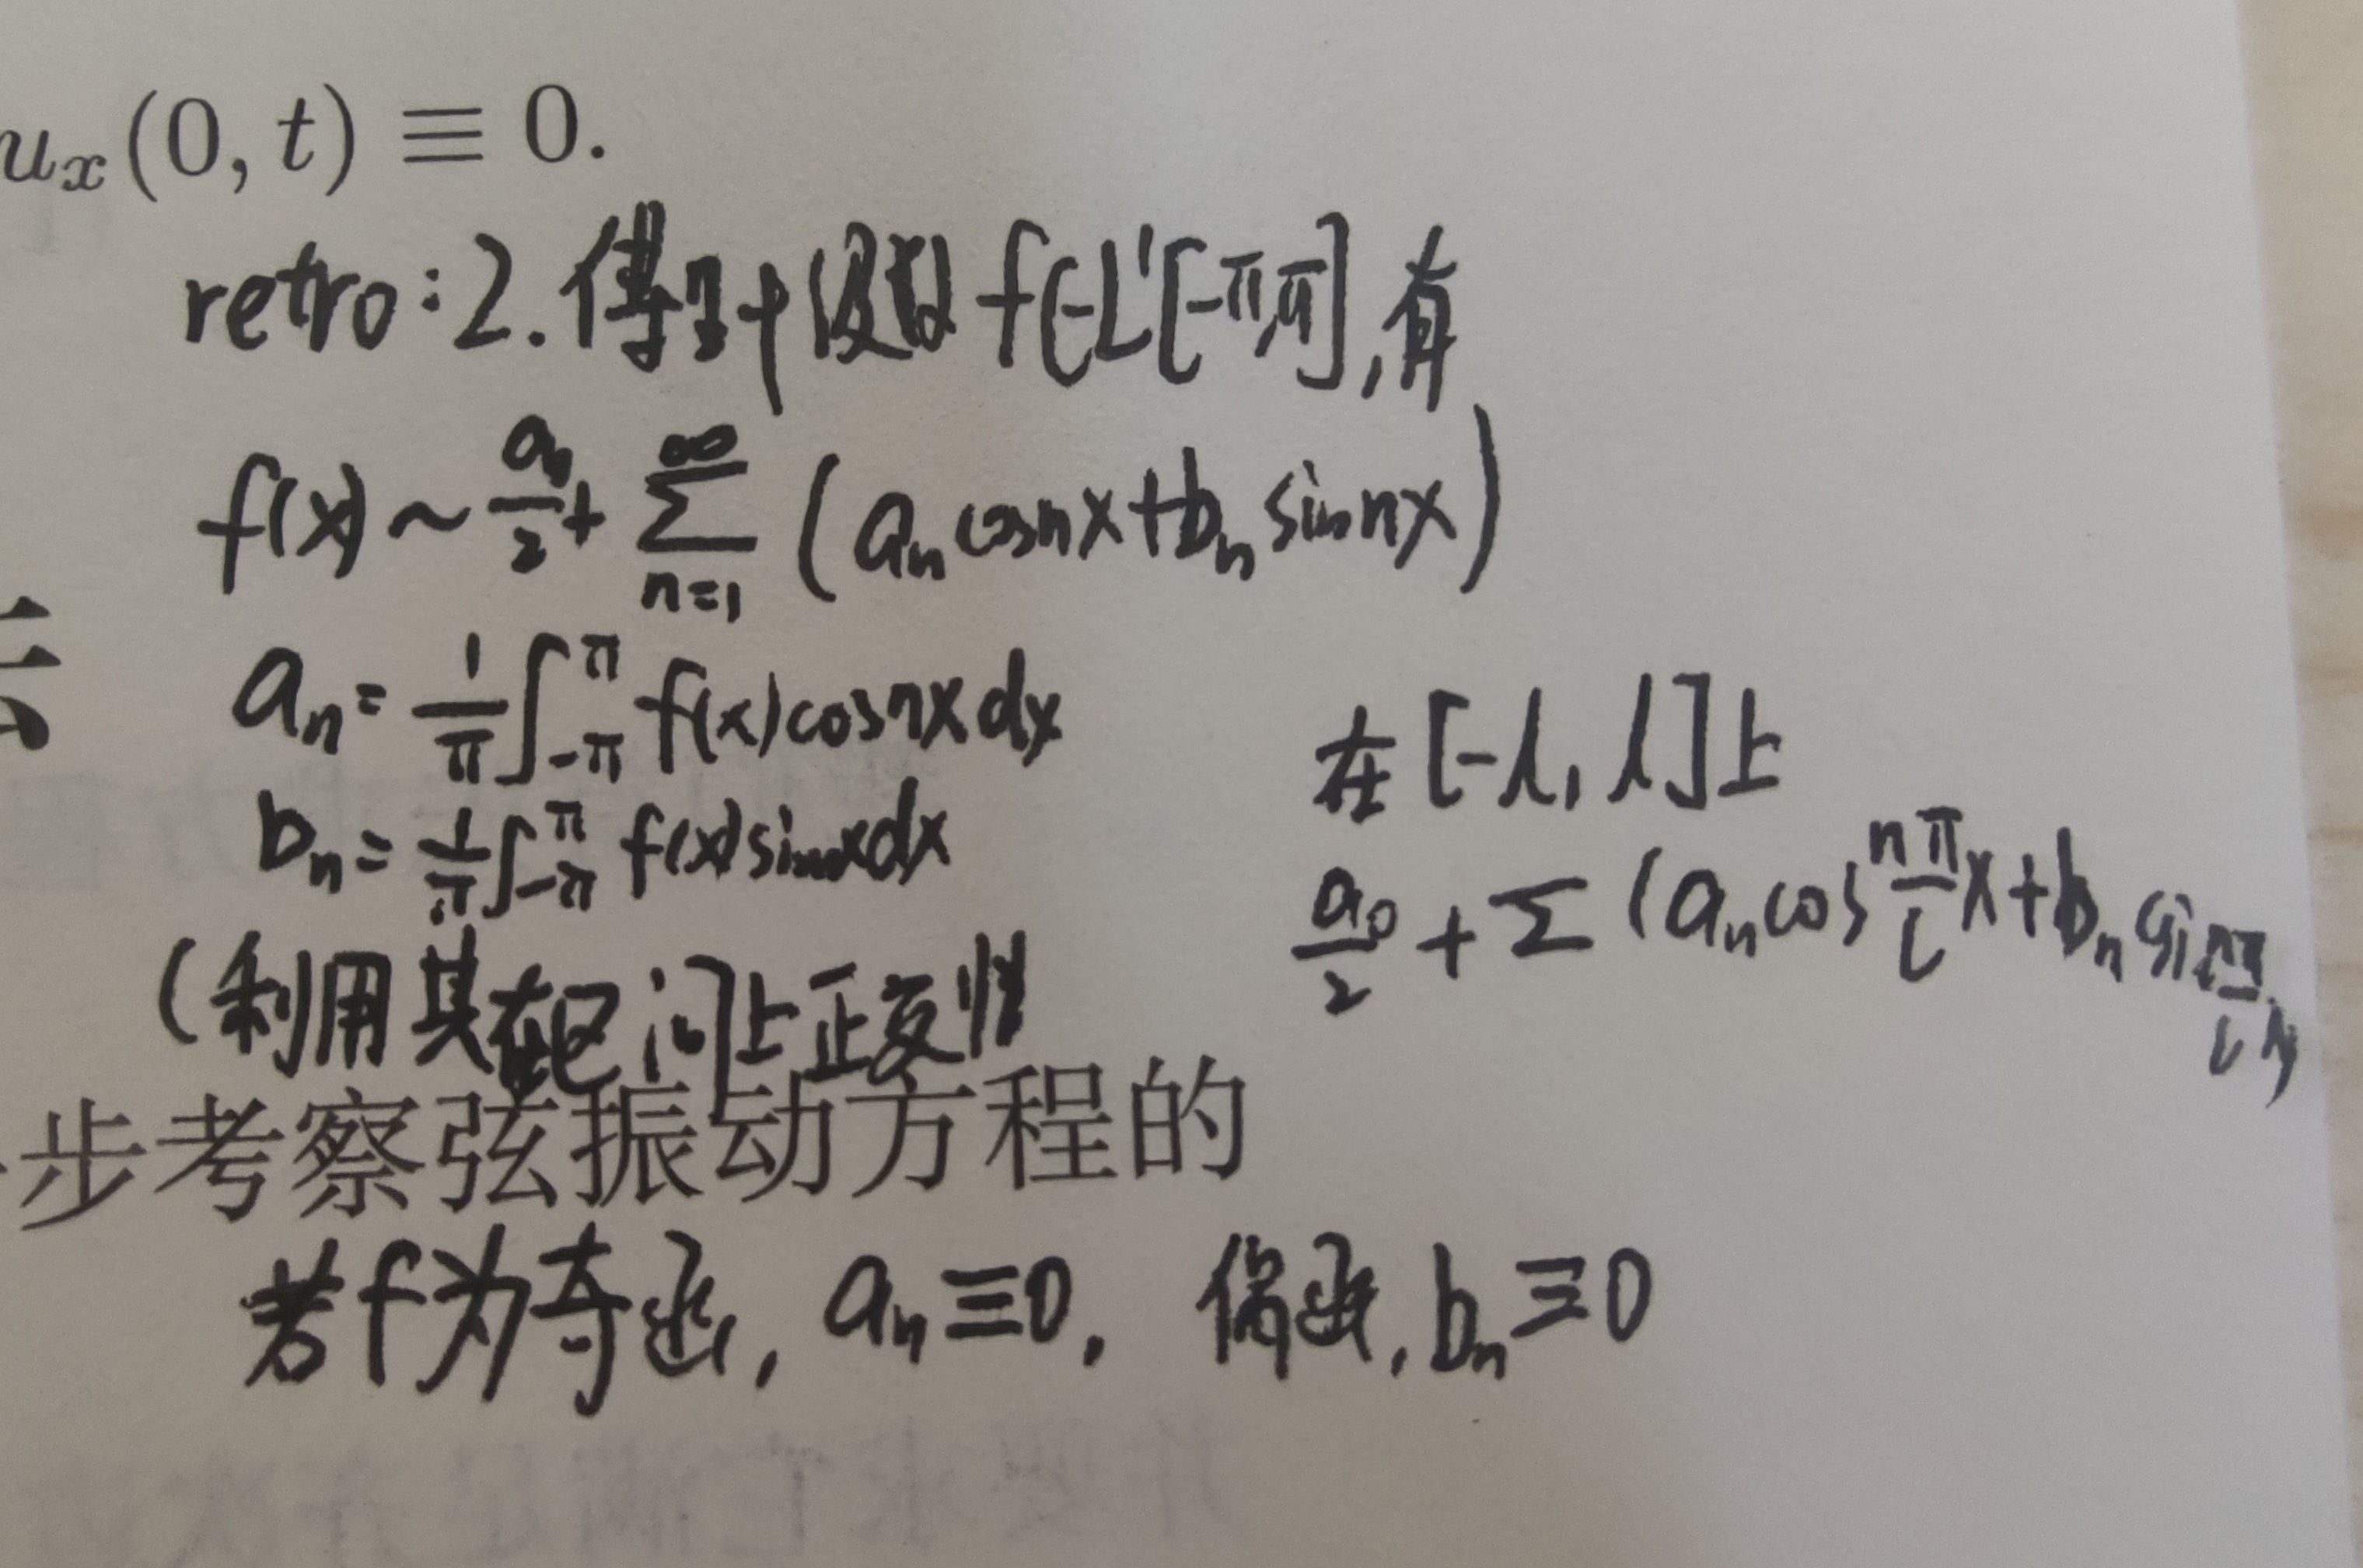 u_x(0, t) ≡ 0.
retro: 2. 傅里叶级数 f∈L¹[-π,π], 有
f(x) ~ a₀/2 + ∑_{n=1}^{∞} (aₙ cos nx + bₙ sin nx)
aₙ = 1/π ∫_{-π}^{π} f(x) cos nx dx
bₙ = 1/π ∫_{-π}^{π} f(x) sin nx dx
在 [-l, l] 上
a₀/2 + ∑ (aₙ cos nπ/l x + bₙ sin nπ/l x)
(利用其在区间上正交性
步考察弦振动方程的
若f为奇函, aₙ≡0, 偶函, bₙ≡0